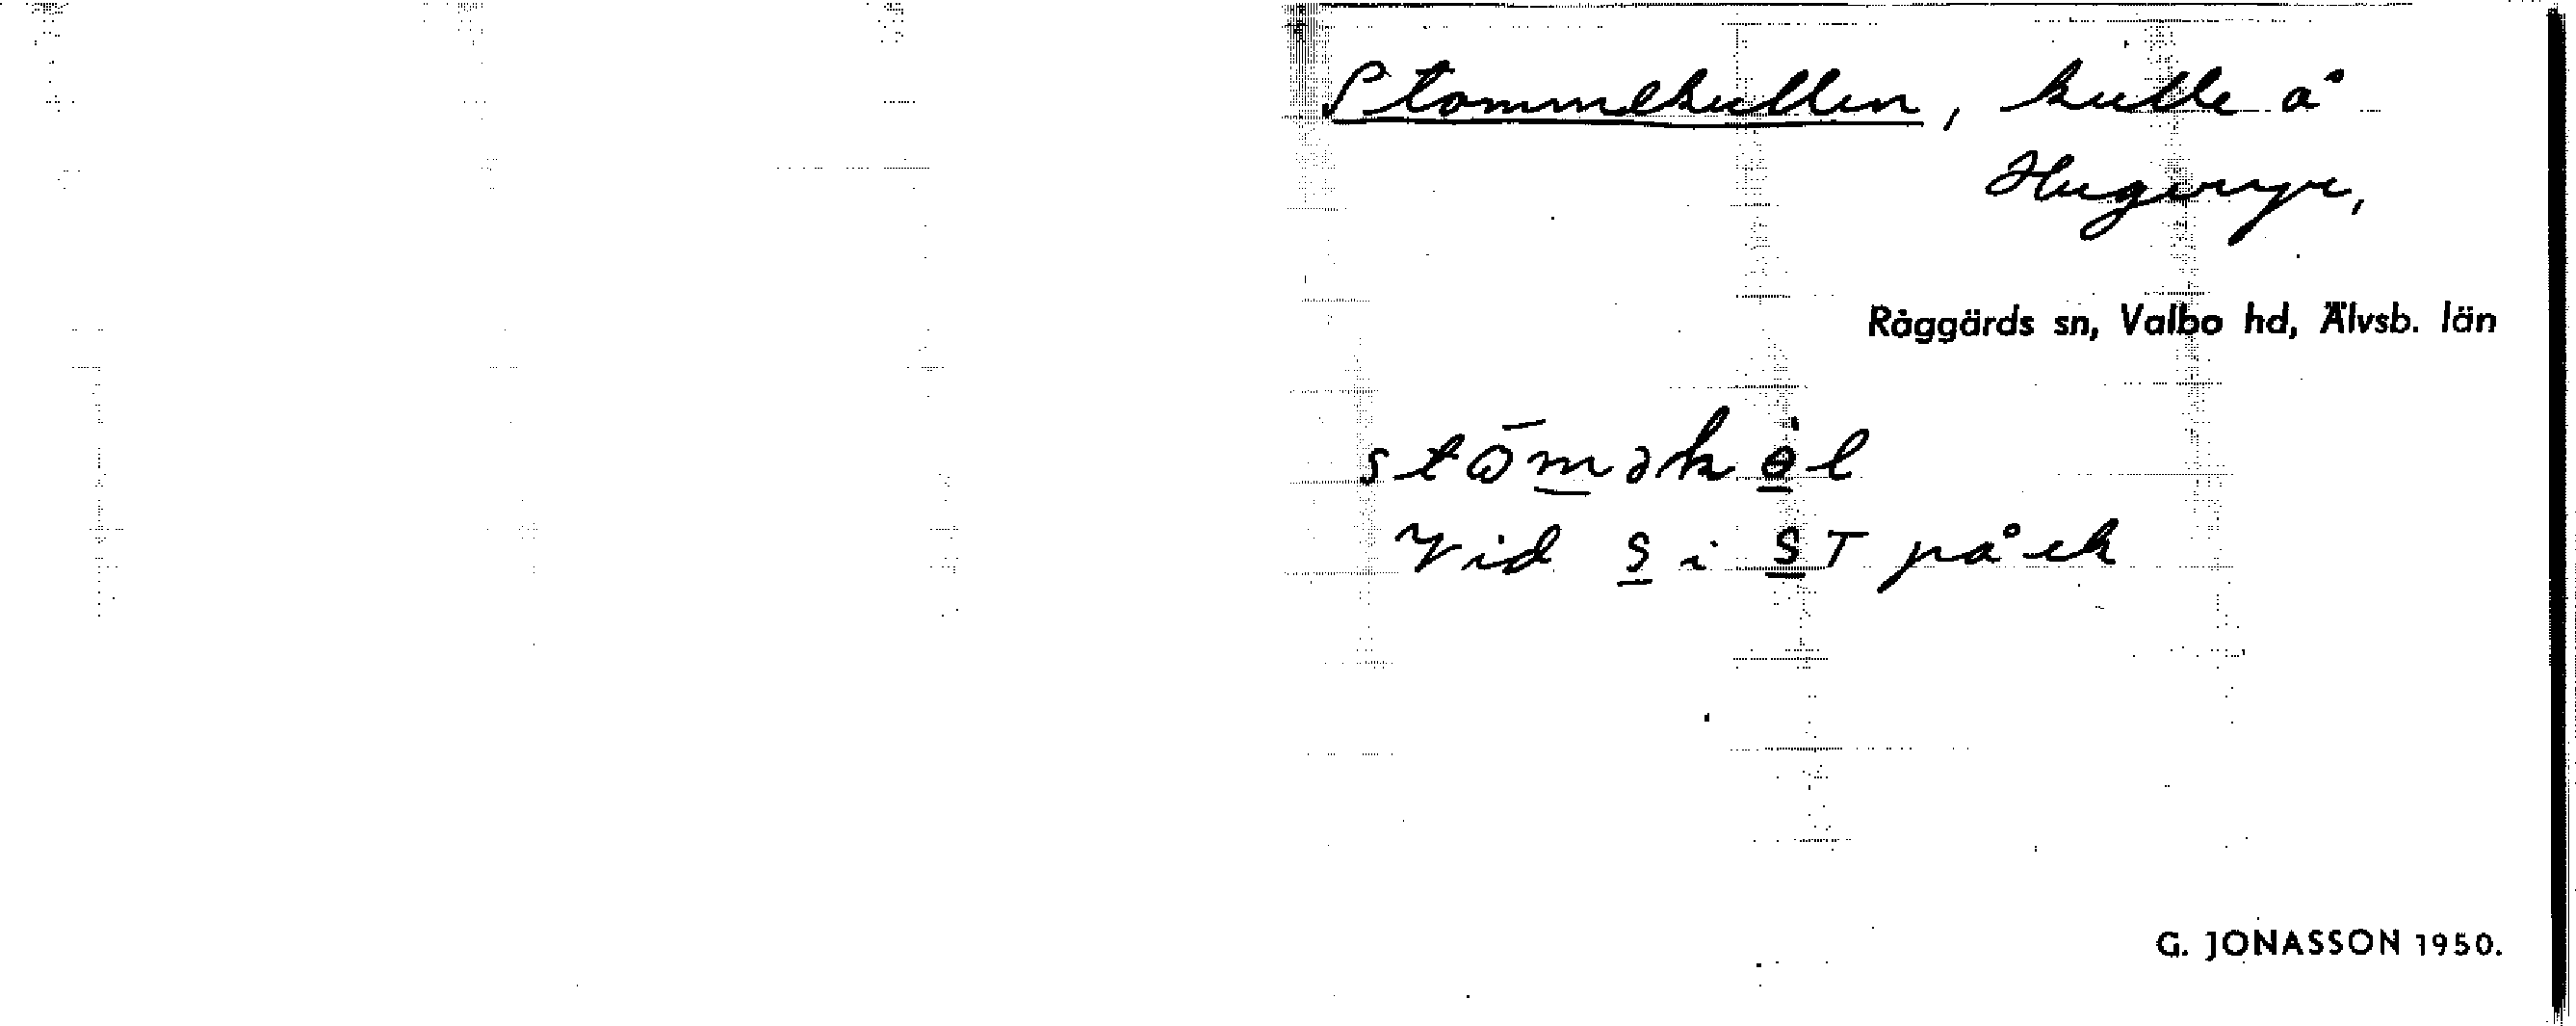 Stommekullen, kulle å
Hugeryr,
Råggärds sn, Valbo hd, Älvsb. län
sto̅m̲əkө̲̀l
Vid S̲ i S̲T på ek
G. JONASSON 1950.